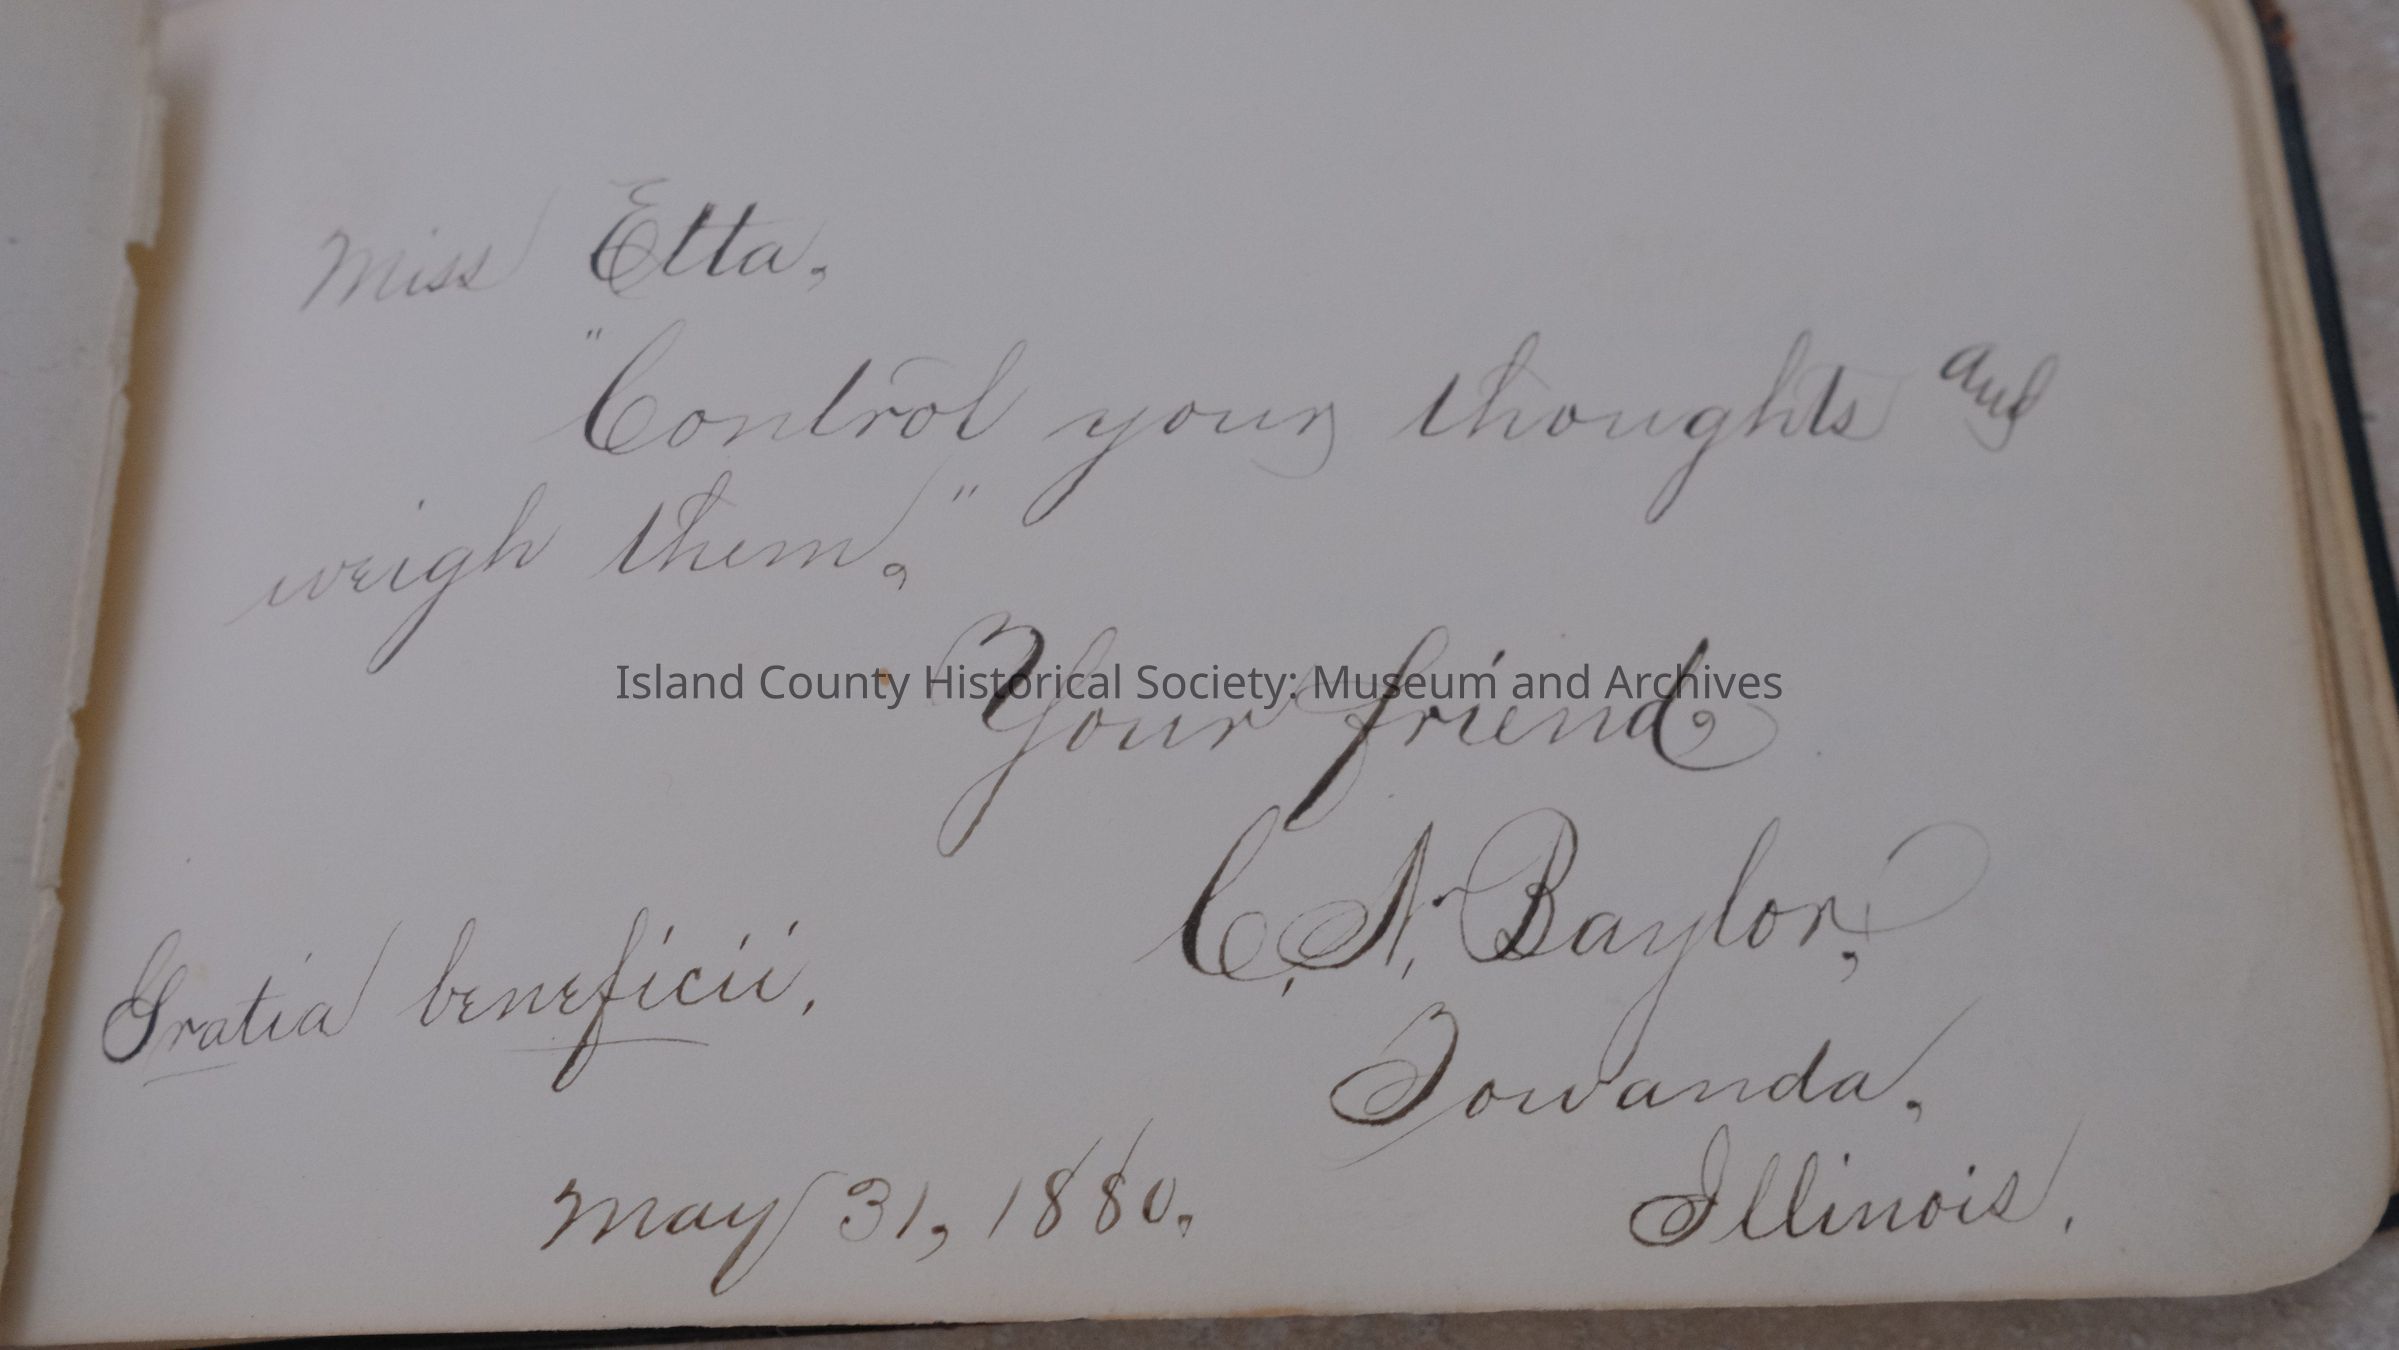 Miss Etta,
"Control your thoughts and
weigh them,"
Island County Historical Society: Museum and Archives
Your friend,
C. A. Baylor,
Gratia beneficii,
Towanda,
May 31, 1880,
Illinois.